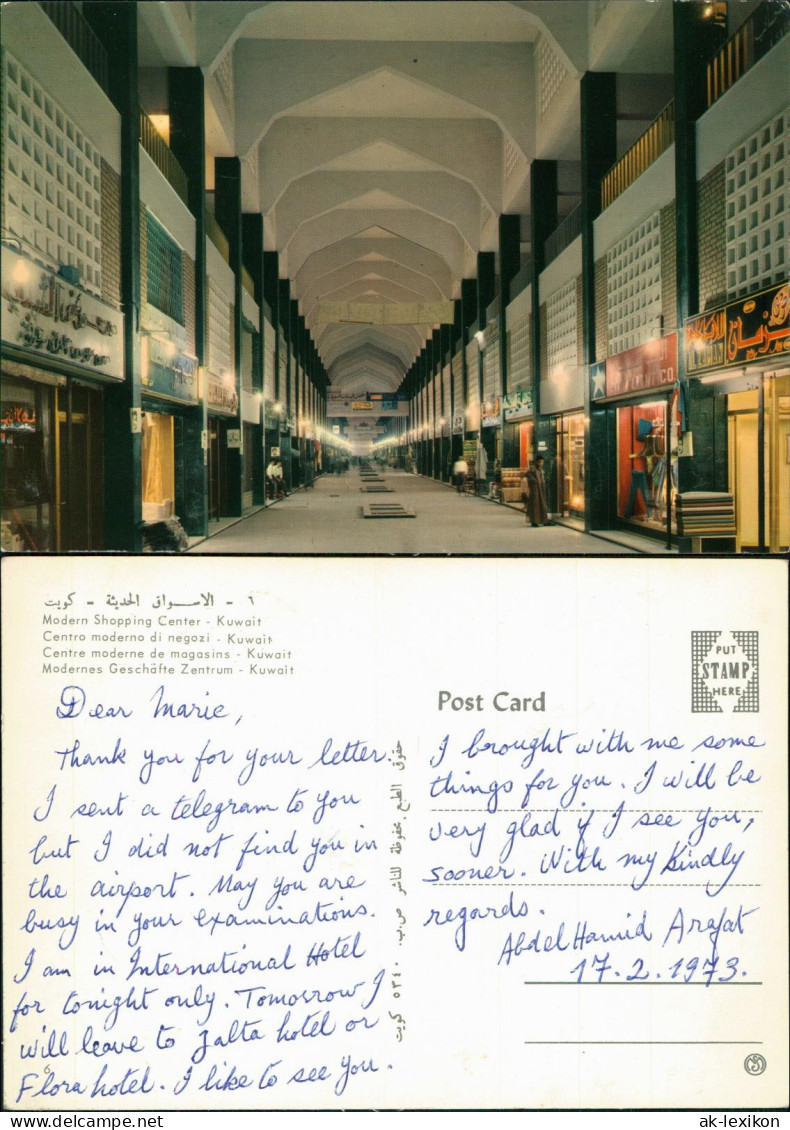 ٦ - الاسواق الحديثة - كويت
Modern Shopping Center - Kuwait
Centro moderno di negozi - Kuwait
Centre moderne de magasins - Kuwait
Modernes Geschäfte Zentrum - Kuwait
Dear Marie,
Thank you for your letter.
I sent a telegram to you
but I did not find you in
the airport. May you are
busy in your examinations.
I am in International Hotel
for tonight only. Tomorrow I
will leave to Zalta hotel or
Flora hotel. I like to see you.
حقوق الطبع محفوظة للناشر ص.ب. ٥٣٤٠ كويت
Post Card
PUT
STAMP
HERE
I brought with me some
things for you. I will be
very glad if I see you,
sooner. With my Kindly
regards.
AbdelHamid Arafat
17.2.1973.
ak-lexikon